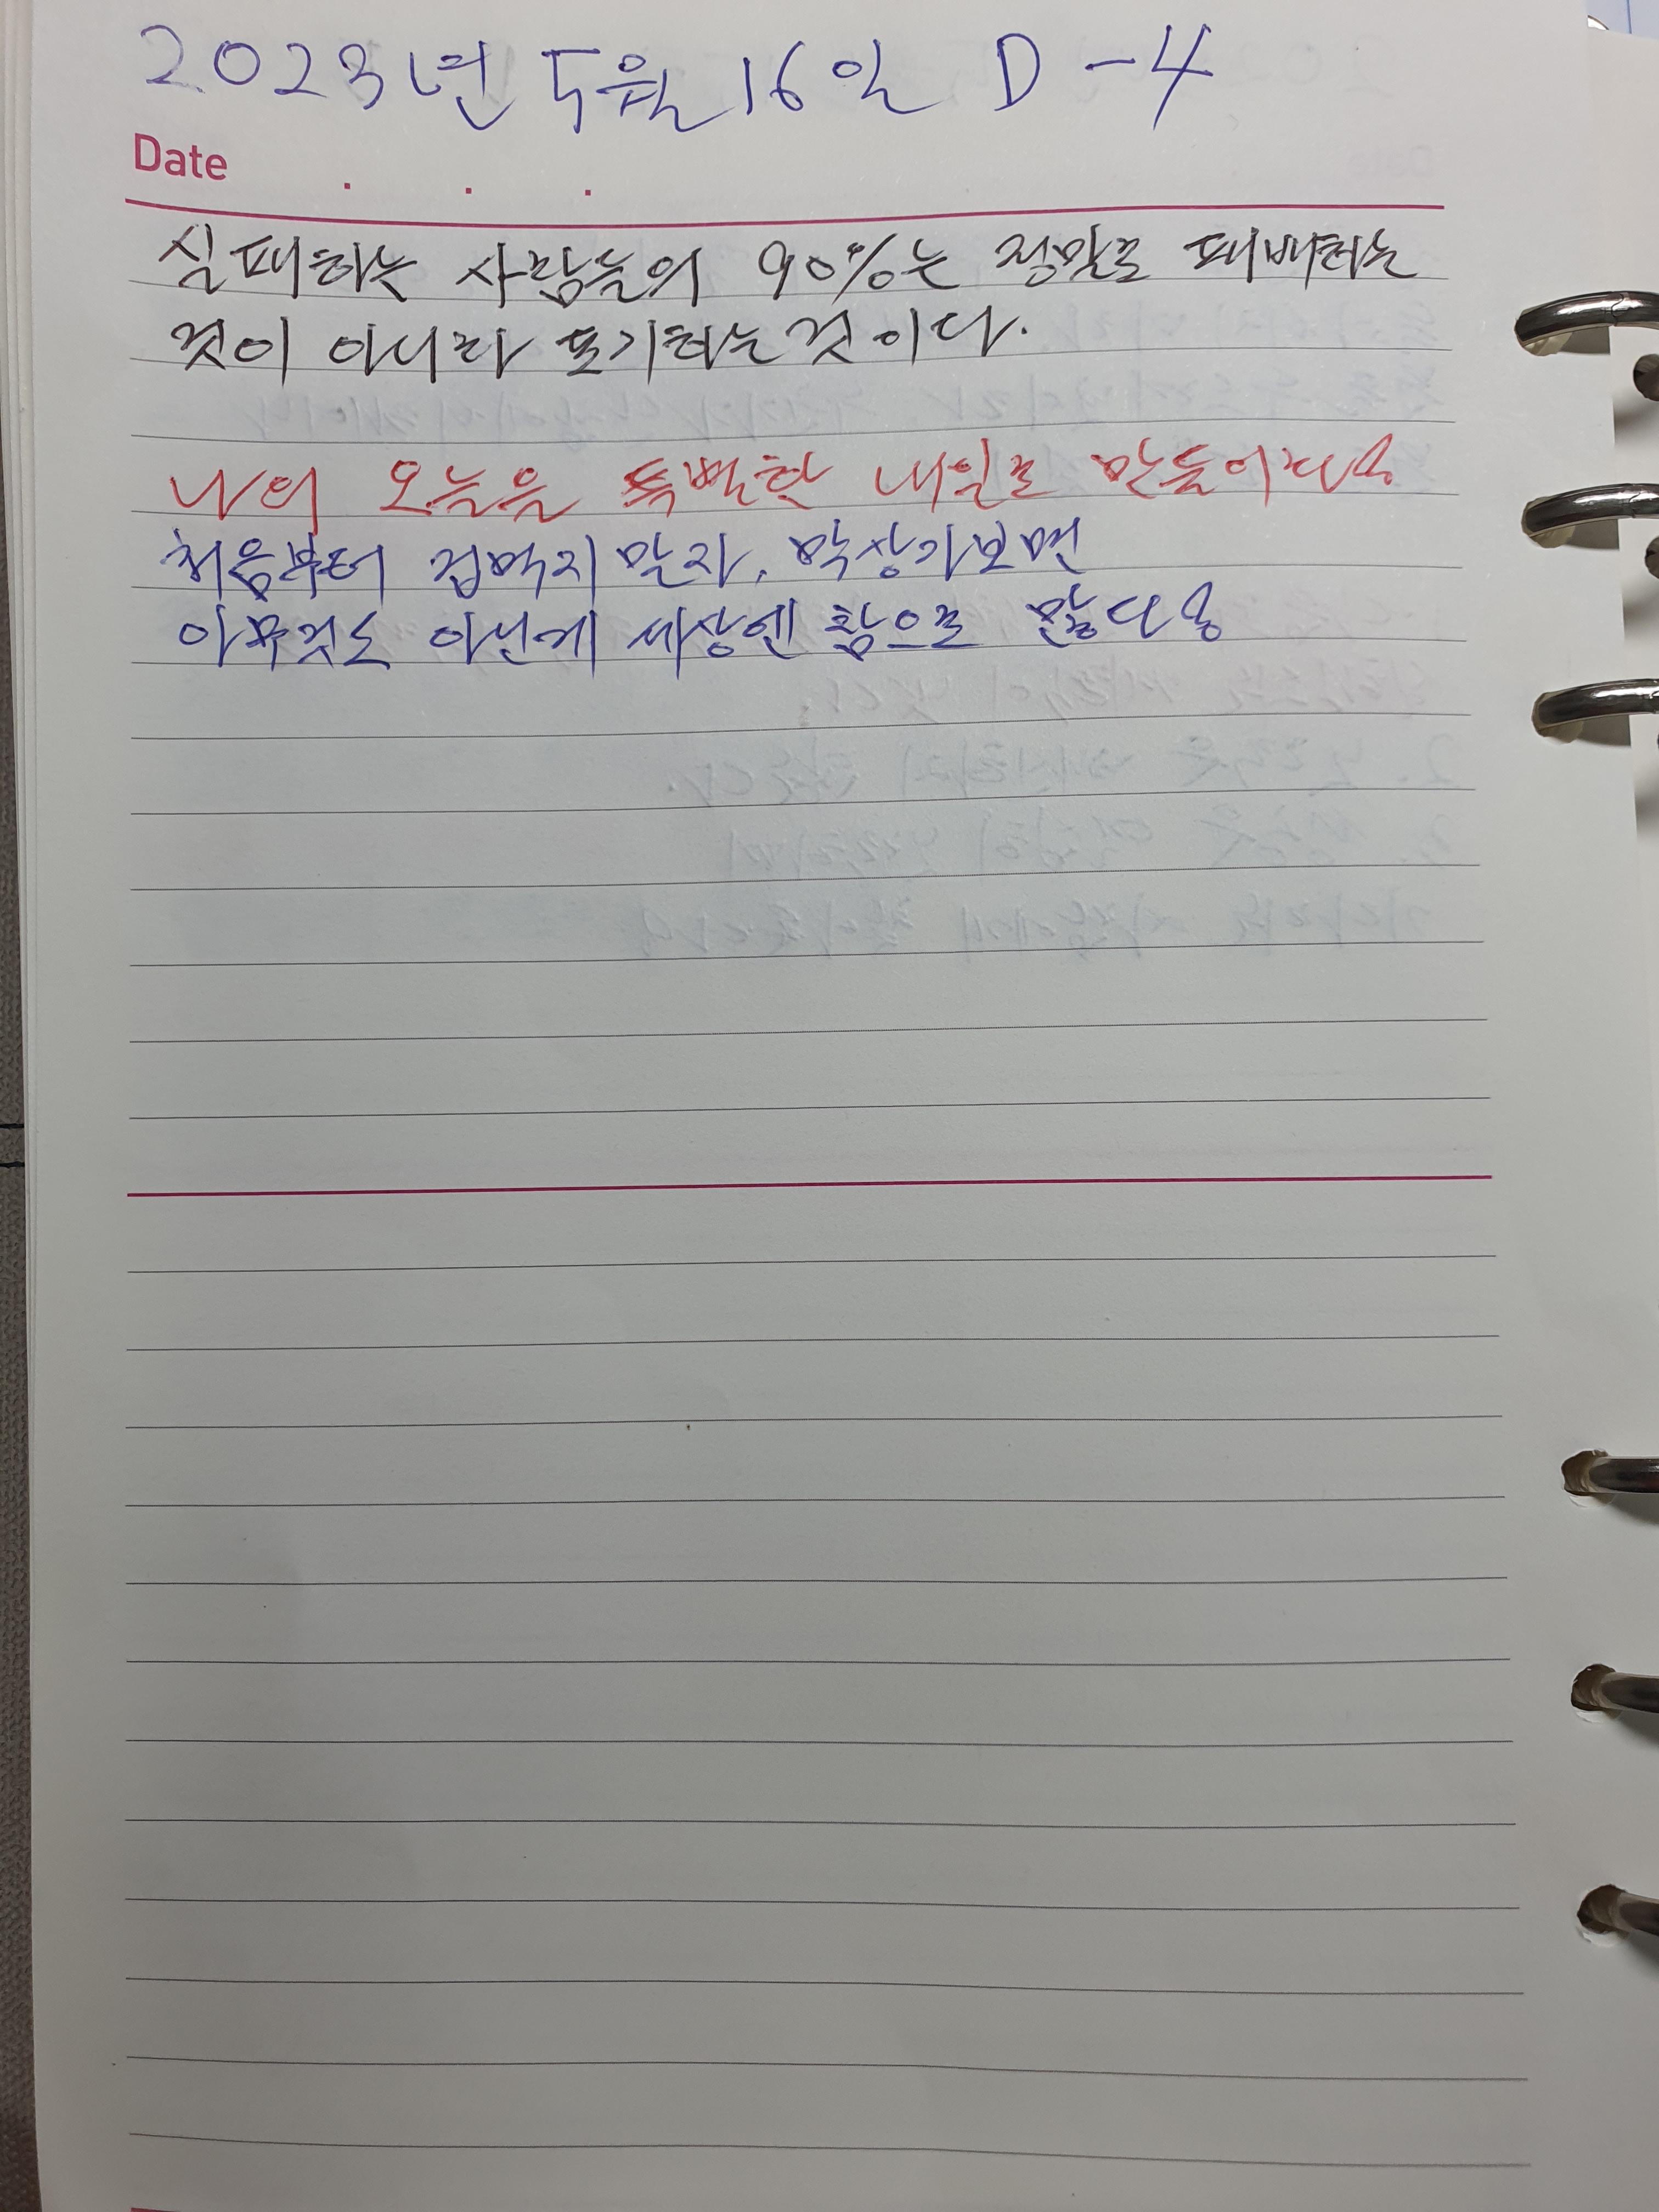 2023년 5월 16일 D-4
Date . . .
실패하는 사람들의 90%는 정말로 패배하는
것이 아니라 포기하는 것이다.
나의 오늘을 특별한 내일로 만들어라!
처음부터 겁먹지 말자, 막상가보면
아무것도 아닌게 세상엔 참으로 많다!